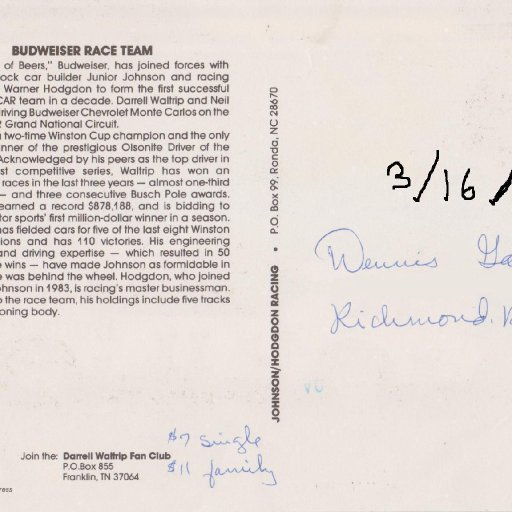 BUDWEISER RACE TEAM
of Beers," Budweiser, has joined forces with
ock car builder Junior Johnson and racing
Warner Hodgdon to form the first successful
CAR team in a decade. Darrell Waltrip and Neil
driving Budweiser Chevrolet Monte Carlos on the
Grand National Circuit.
two-time Winston Cup champion and the only
nner of the prestigious Olsonite Driver of the
Acknowledged by his peers as the top driver in
st competitive series, Waltrip has won an
races in the last three years — almost one-third
— and three consecutive Busch Pole awards.
earned a record $878,188, and is bidding to
tor sports' first million-dollar winner in a season.
has fielded cars for five of the last eight Winston
ions and has 110 victories. His engineering
and driving expertise — which resulted in 50
e wins — have made Johnson as formidable in
e was behind the wheel. Hodgdon, who joined
ohnson in 1983, is racing's master businessman.
o the race team, his holdings include five tracks
ioning body.
Join the: Darrell Waltrip Fan Club
P.O.Box 855
Franklin, TN 37064
ress
$7 single
$11 family
JOHNSON/HODGDON RACING • P.O. Box 99, Ronda, NC 28670
3/16/
Dennis Ga
Richmond.